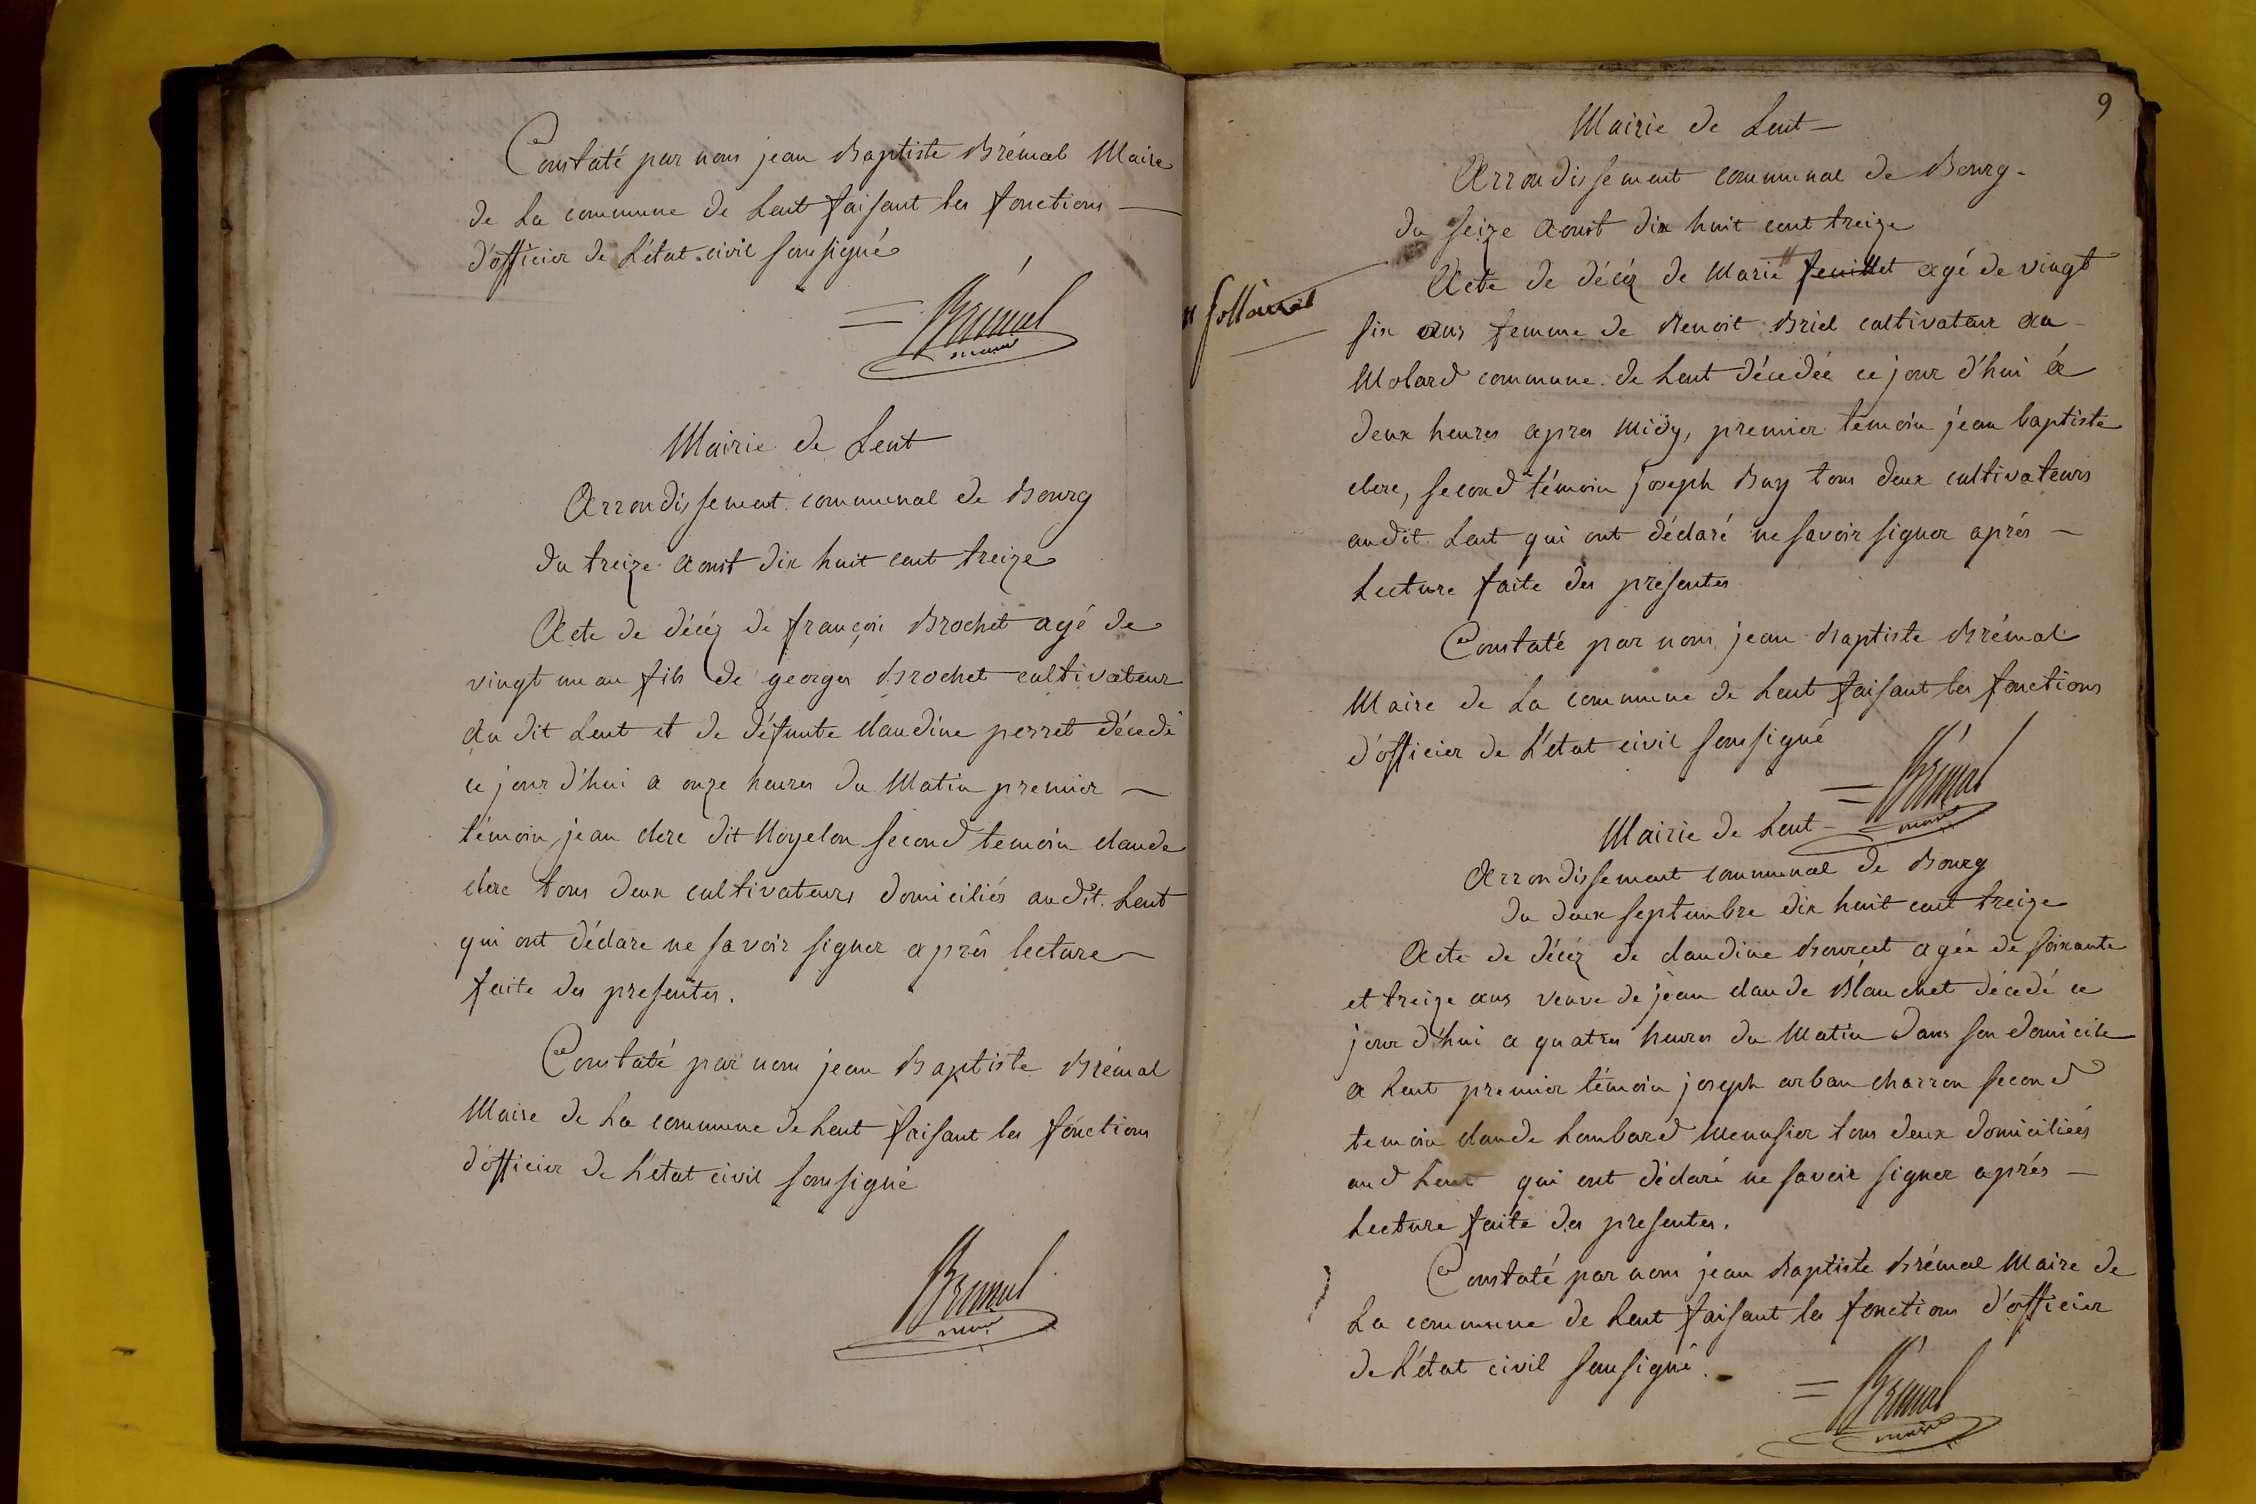 Constaté par nous jean Baptiste Brémal Maire
de La commune de Lent faisant les fonctions —
d'officier de L'état civil soussigné
= Brémal
maire
Mairie de Lent
Arrondissement communal de Bourg
du treize Aoust dix huit cent treize
Acte de décéz de françois Brochet agé de
vingt un an fils de georges Brochet cultivateur
du dit Lent et de défunte claudine perret décedé
ce jour d'hui a onze heures du Matin premier —
témoin jean clerc dit second temoin claude
clerc tous deux cultivateurs domiciliés audit Lent
qui ont déclaré ne savoir signer après lecture —
faite des presentes.
Constaté par nous jean Baptiste Brémal
Maire de La commune de Lent faisant les fonctions
d'officier de L'état civil soussigné
Brémal
maire
9
Mairie de Lent —
Arrondissement communal de Bourg -
du seize Aoust dix huit cent treize
Acte de décéz de Marie " feuillet agé de vingt
six ans femme de Benoit Briel cultivateur au -
Molard commune de Lent décedée ce jour d'hui à
deux heures apres Midy, premier temoin jean baptiste
clerc, second témoin joseph Buy tous deux cultivateurs
audit Lent qui ont déclaré ne savoir signer après —
Lecture faite des presentes
Constaté par nous jean Baptiste Brémal
Maire de La commune de Lent faisant les fonctions
d'officier de L'état civil soussigné
= Brémal
maire
Mairie de Lent -
Arrondissement communal de Bourg
du deux septembre dix huit cent treize
Acte de décéz de claudine Bourcet agée de soixante
et treize ans veuve de jean claude Blanchet décedé ce
jour d'hui a quatres heures du Matin dans son domicile
a Lent premier témoin joseph arban charron second
temoin claude Lombard Menusier tous deux domiciliés
aud Lent qui ont déclaré ne savoir signer après —
Lecture faite des presentes.
Constaté par nous jean Baptiste Brémal Maire de
La commune de Lent faisant les fonctions d'officier
de L'état civil soussigné.
= Brémal
maire